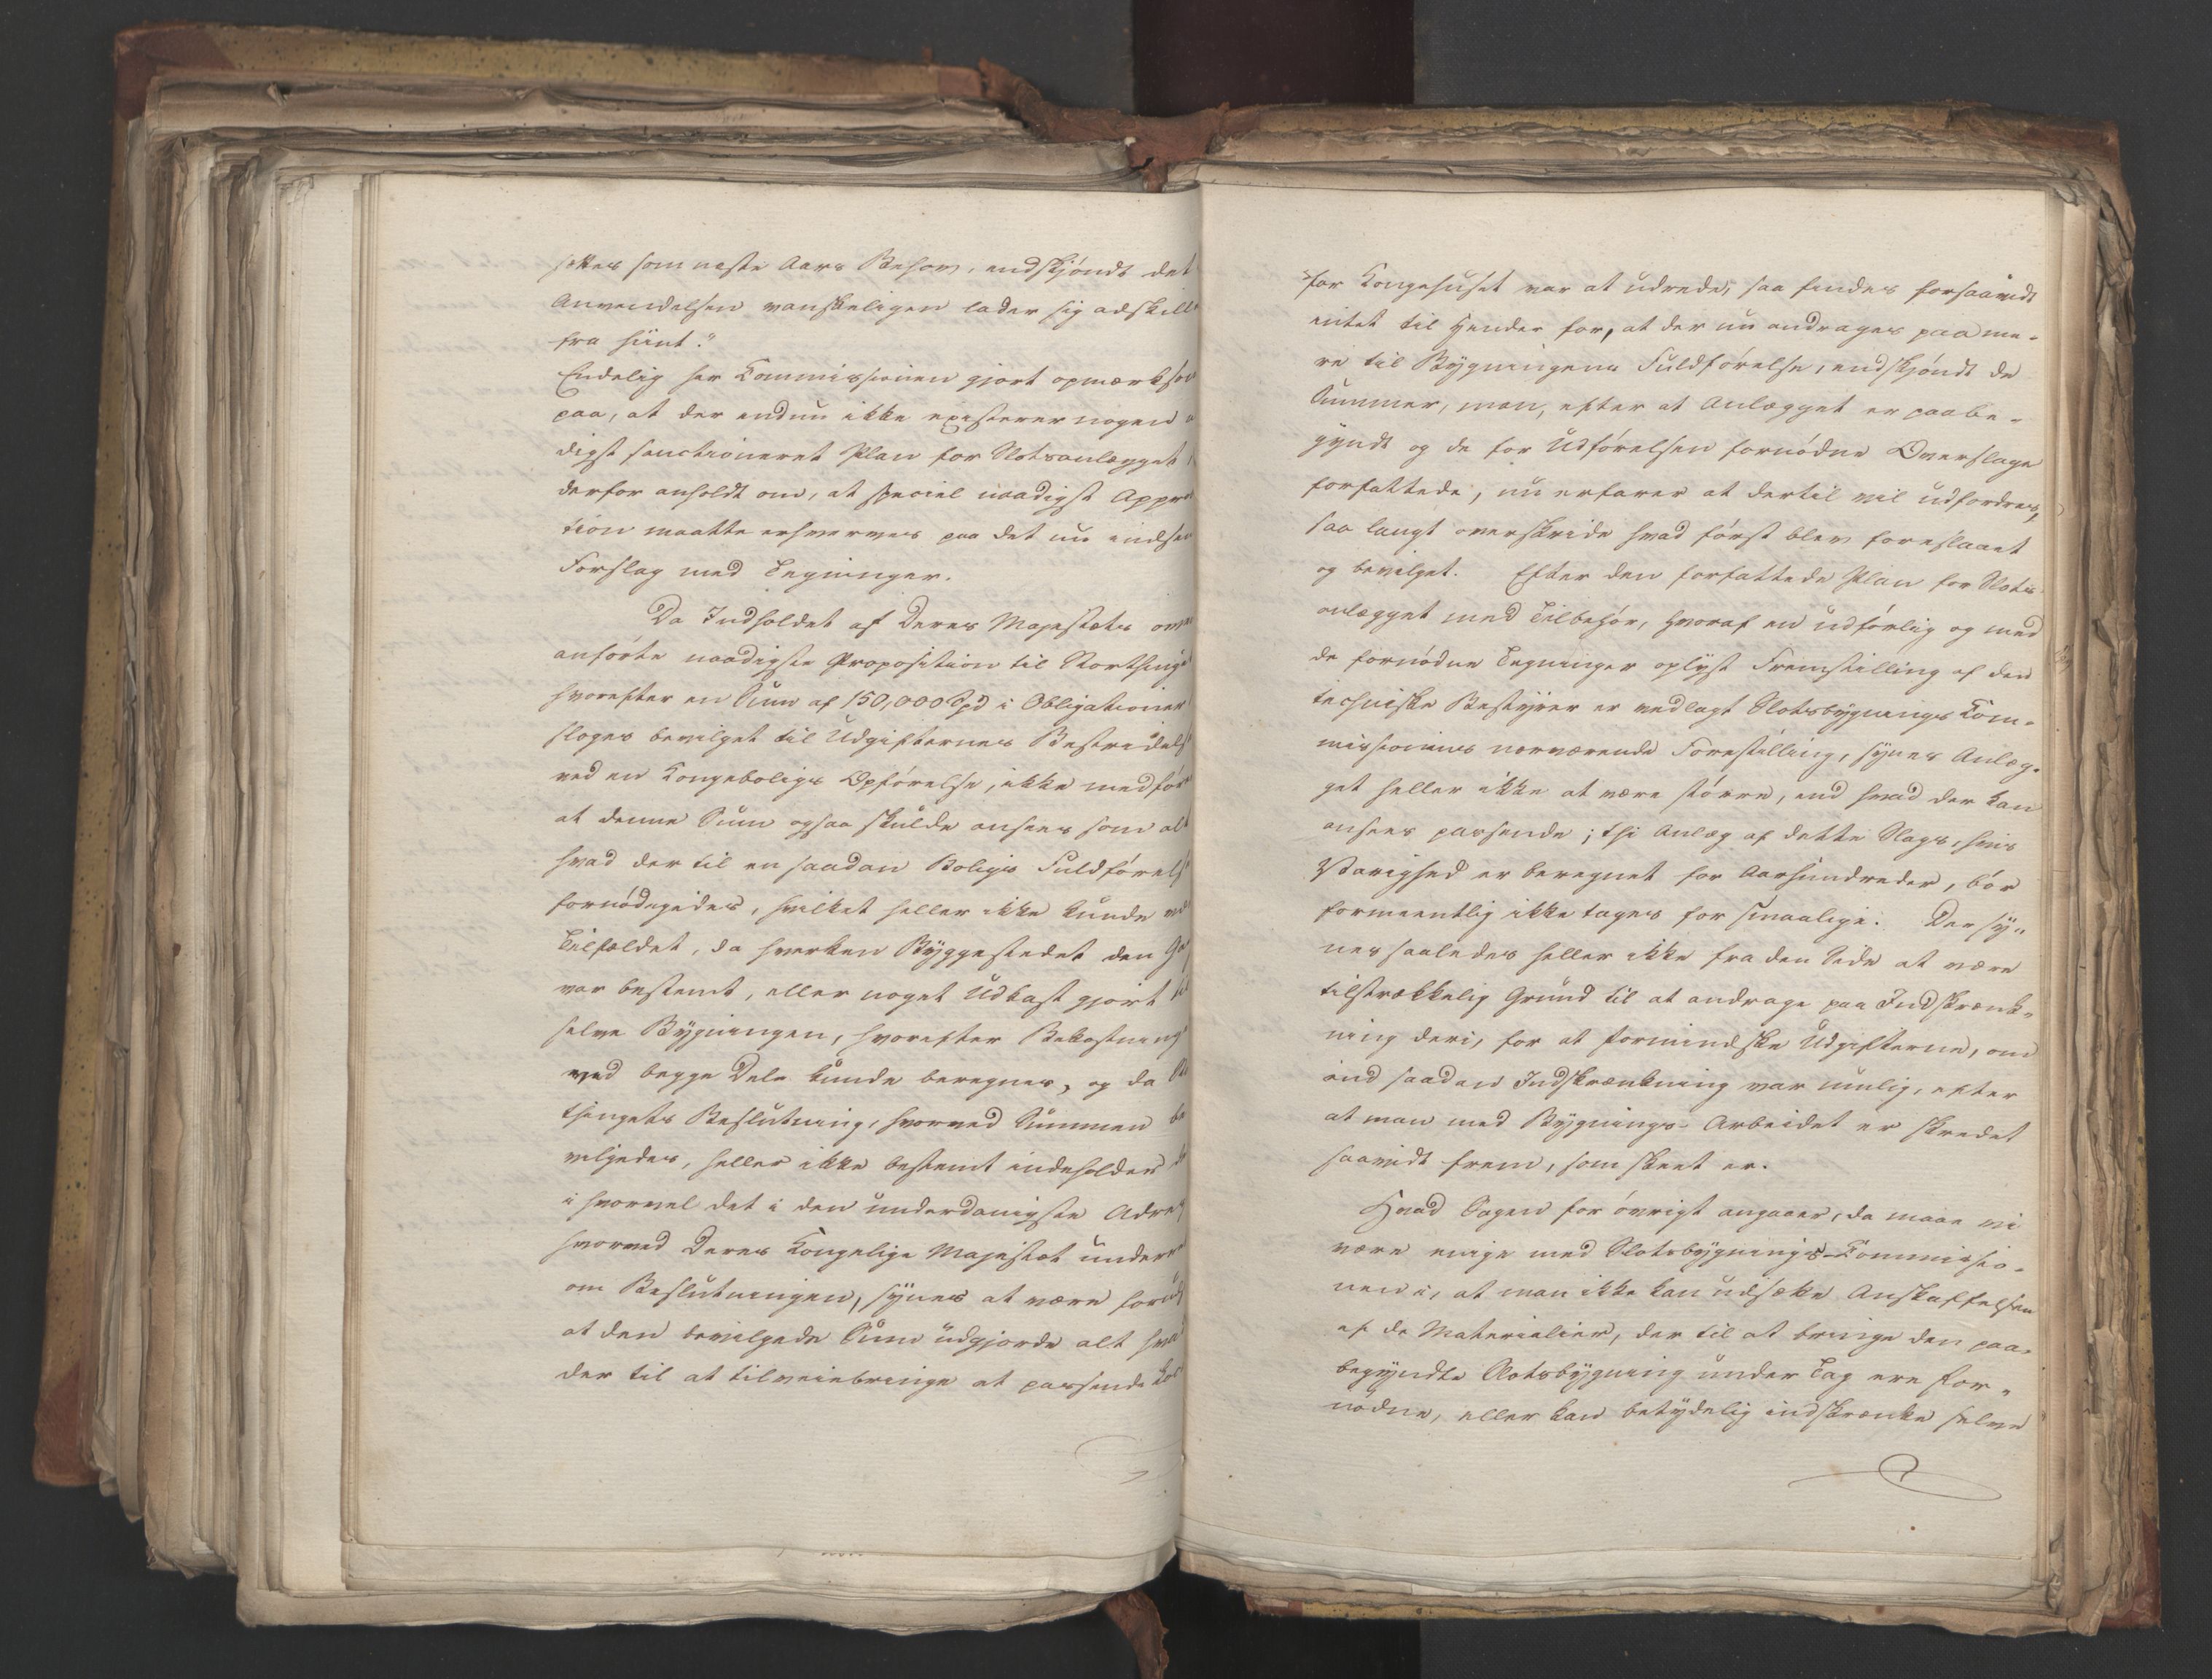 sættes som næste Aars Behov, endskjøndt det
Anvendelsen vanskeligen lader sig adskille
fra hiint."
Endelig har Kommissionen gjort opmærksom
paa, at der endnu ikke existerer nogen
digst sanctioneret Plan for Slotsanlægget
derfor anholdt om, at speciel naadigst Appro
tion maatte erhverves paa det nu indsen
Forslag med Tegninger.
Da Indholdet af Deres Majestæts oven
anførte naadigste Proposition til Storthinget
hvorefter en Sum af 150,000 Spd i Obligationer
sloges bevilget til Udgifternes Bestridelse
ved en Kongeboligs Opførelse, ikke medfører
at denne Sum ogsaa skulde ansees som alt
hvad der til en saadan Boligs Fuldførelse
fornødigedes, hvilket heller ikke kunde være
Tilfældet, da hverken Byggestedet den Gang
var bestemt, eller noget Udkast gjort til
selve Bygningen, hvorefter Bekostning
ved begge Dele kunde beregnes, og da Stor
thingets Beslutning, hvorved Summen be
vilgedes, heller ikke bestemt indeholder
i hvorvel det i den underdanigste Adresse
hvorved Deres Kongelige Majestæt underre
om Beslutningen, synes at være forud
at den bevilgede Sum udgjorde alt hvad
der til at tilveiebringe et passende Lo
for Kongehuset var at udrede, saa findes forsaavidt
intet til Hinder for, at der nu andrages paa me-
re til Bygningens Fuldførelse, endskjøndt de
Summer, man, efter at Anlægget er paabe-
gyndt og de for Udførelsen fornødne Overslage
forfattede, nu erfarer at dertil vil udfordres,
saa langt overskride hvad først blev foreslaaet
og bevilget. Efter den forfattede Plan for Slots
anlægget med Tilbehør, hvoraf en udførlig og med
de fornødne Tegninger oplyst Fremstilling af den
techniske Bestyrer er vedlagt Slotsbygnings Kom-
missionens nærværende Forestilling, synes Anlæg-
get heller ikke at være større, end hvad der kan
ansees passende; thi Anlæg af dette Slags, hvis
Varighed er beregnet for Aarhundreder, bør
formeentlig ikke tages for smaalige. Der sy-
nes saaledes heller ikke fra den Side at være
tilstrækkelig Grund til at andrage paa Indskrænk-
ning deri, for at formindske Udgifterne, om
end saadan Indskrænkning var mulig, efter
at man med Bygnings-Arbeidet er skredet
saavidt frem, som skeet er.
Hvad Sagen for øvrigt angaaer, da maae vi
være enige med Slotsbygnings-Commissio-
nen i, at man ikke kan udsætte Anskaffelsen
af de Materialier, der til at bringe den paa-
begyndte Slotsbygning under Tag ere for-
nødne, eller kan betydelig indskrænke selve